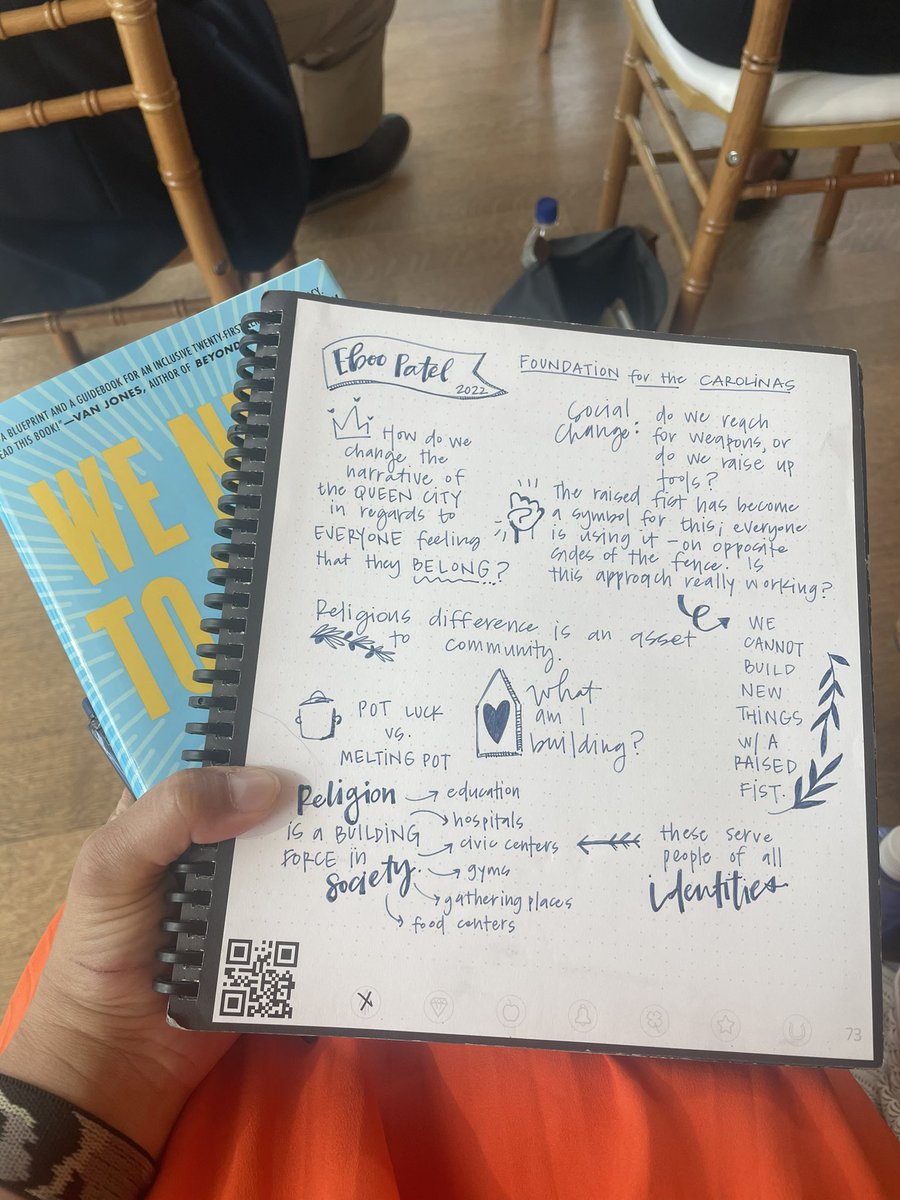 A BLUEPRINT AND A GUIDEBOOK FOR AN INCLUSIVE TWENTY-FIRST
READ THIS BOOK!"—VAN JONES, AUTHOR OF BEYOND
WE
TO
Eboo Patel
2022
FOUNDATION for the CAROLINAS
How do we
change the
narrative of
the QUEEN CITY
in regards to
EVERYONE feeling
that they BELONG?
Social
Change:
do we reach
for weapons, or
do we raise up
tools?
The raised fist has become
a symbol for this; everyone
is using it - on opposite
sides of the fence. Is
this approach really working?
Religious difference is an asset
to community.
WE
CANNOT
BUILD
NEW
THINGS
W/ A
RAISED
FIST.
POT LUCK
VS.
MELTING POT
What
am I
building?
Religion
is a BUILDING
FORCE in
Society.
education
hospitals
civic centers
gyms
gathering places
food centers
these serve
people of all
identities
X
73